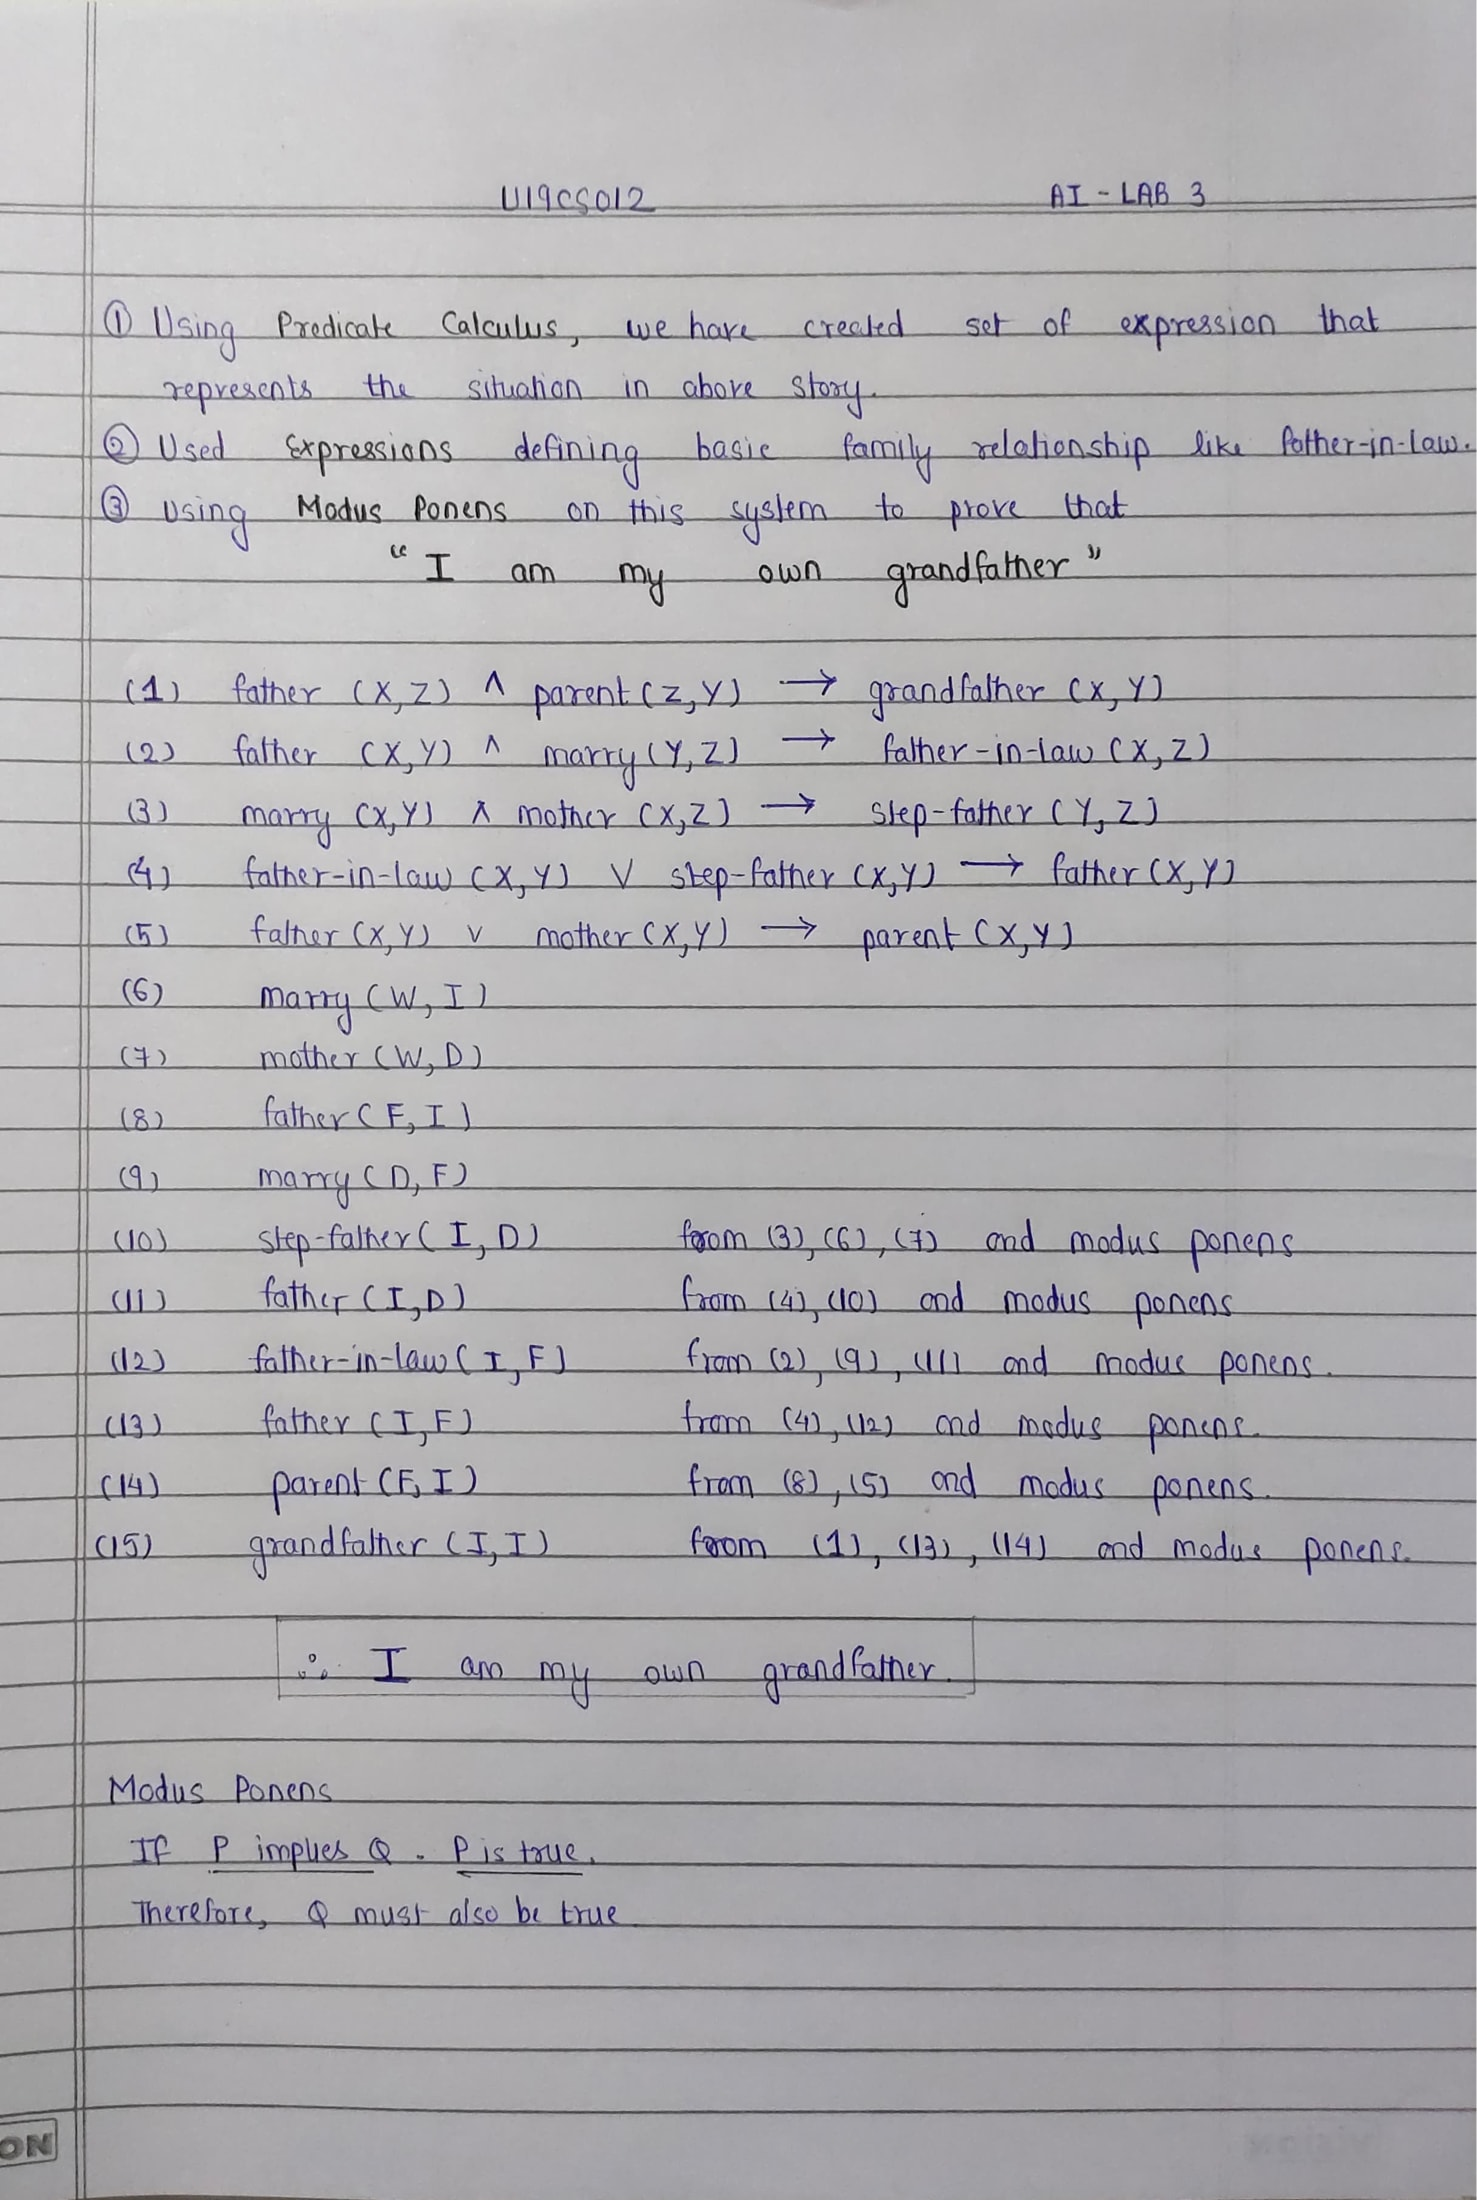 U19CS012 AI - LAB 3
① Using Predicate Calculus, we have created set of expression that
represents the situation in above story.
② Used Expressions defining basic family relationship like father-in-law.
③ Using Modus Ponens on this system to prove that
“ I am my own grandfather ”
(1) father (X, Z) ∧ parent (Z, Y) → grandfather (X, Y)
(2) father (X, Y) ∧ marry (Y, Z) → father-in-law (X, Z)
(3) marry (X, Y) ∧ mother (X, Z) → step-father (Y, Z)
(4) father-in-law (X, Y) ∨ step-father (X, Y) → father (X, Y)
(5) father (X, Y) ∨ mother (X, Y) → parent (X, Y)
(6) marry (W, I)
(7) mother (W, D)
(8) father (F, I)
(9) marry (D, F)
(10) step-father (I, D) from (3), (6), (7) and modus ponens
(11) father (I, D) from (4), (10) and modus ponens
(12) father-in-law (I, F) from (2), (9), (11) and modus ponens.
(13) father (I, F) from (4), (12) and modus ponens.
(14) parent (F, I) from (8), (5) and modus ponens.
(15) grandfather (I, I) from (1), (13), (14) and modus ponens.
∴ I am my own grandfather.
Modus Ponens
If P implies Q . P is true.
Therefore, Q must also be true
ON